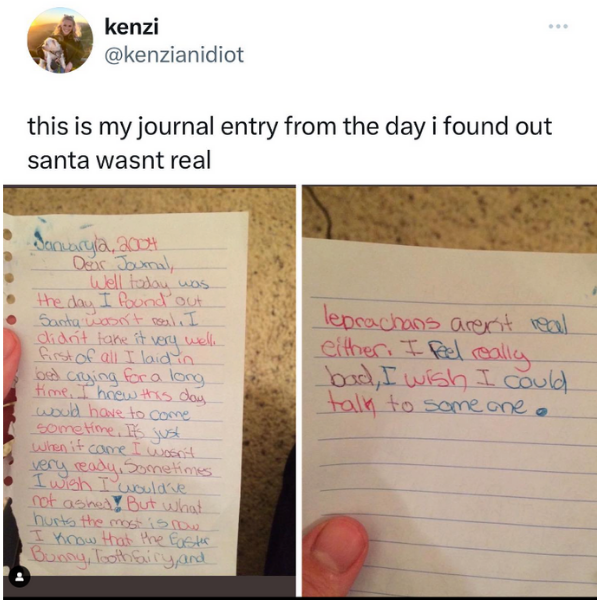 kenzi
@kenzianidiot
this is my journal entry from the day i found out
santa wasnt real
Dear Journal,
Well today was
the day I found out
Santa wasn't real. I
didn't take it very well.
first of all I laid in
bed crying for a long
time. I knew this day
would have to come
sometime. It's just
when it came I wasn't
very ready. Sometimes
I wish I would've
not asked! But what
hurts the most is now
I know that the Easter
Bunny, Toothfairy, and
leprachans aren't real
either. I feel really
bad, I wish I could
talk to someone.